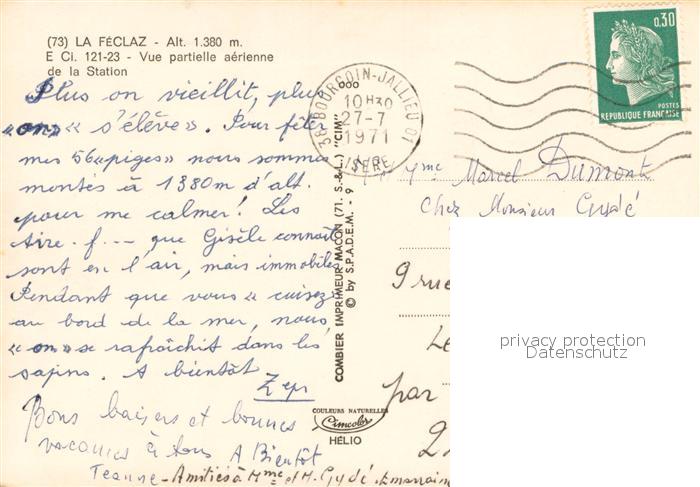 (73) LA FÉCLAZ - Alt. 1.380 m.
E Ci. 121-23 - Vue partielle aérienne
de la Station
Plus on vieillit, plus
"on" "s'élève". Pour fêter
mes 56 "piges" nous sommes
montés à 1380m d'alt.
pour me calmer! Les
Aire-f--- que Gisèle connait
sont en l'air, mais immobiles
Pendant que vous "cuisez"
au bord de la mer, nous
"on" se rafraîchit dans les
sapins. A bientôt
Bons baisers et bonnes
vacances à tous A Bientôt
Jeanne - Amitiés à Mme et M. Gydé
38 BOURGOIN-JALLIEU 01
10 H30
27-7
1971
ISÈRE
COMBIER IMPRIMEUR MACON (71. S.-&-L.) "CIM"
© by S.P.A.D.E.M. - 9
COULEURS NATURELLES
Cimcolor
HÉLIO
0,30
POSTES
REPUBLIQUE FRANÇAISE
Mme Marcel Dumont
Chez Monsieur Gydé
9 rue
par
privacy protection
Datenschutz